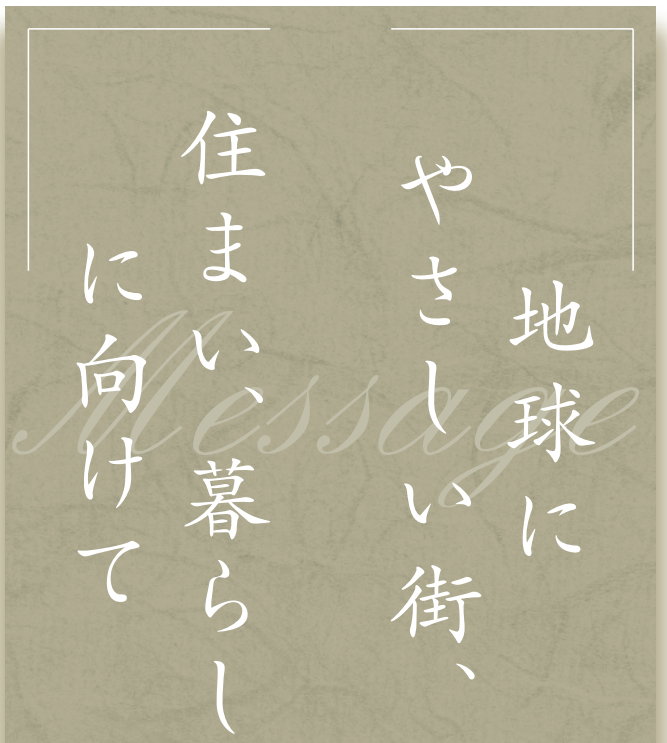 地球に
やさしい街、
住まい、暮らし
に向けて
Message